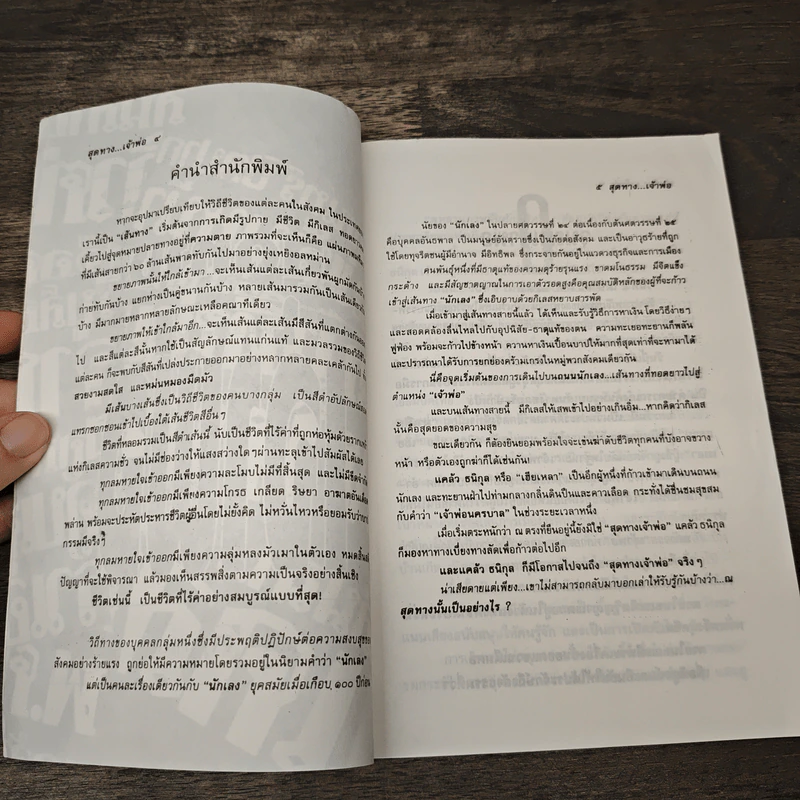 สุดทาง...เจ้าพ่อ ๔
คำนำสำนักพิมพ์
หากจะอุปมาเปรียบเทียบให้วิถีชีวิตของแต่ละคนในสังคม ในประเทศ
เรานี้เป็น "เส้นทาง" เริ่มต้นจากการเกิดมีรูปกาย มีชีวิต มีกิเลส ทอดยาว
เคี้ยวไปสู่จุดหมายปลายทางอยู่ที่ความตาย ภาพรวมที่จะเห็นก็คือ แผ่นภาพ
ที่มีเส้นสายกว่า ๖๐ ล้านเส้นพาดทับกันไปมาอย่างยุ่งเหยิงอลหม่าน
ขยายภาพนั้นให้ใกล้เข้ามา...จะเห็นเส้นแต่ละเส้นเกี่ยวพันผูกมัดกัน
ก่ายทับกันบ้าง แยกห่างเป็นคู่ขนานกันบ้าง หลายเส้นมารวมกันเป็นเส้นเดียว
บ้าง มีมากมายหลากหลายลักษณะเหลือคณาทีเดียว
ขยายภาพให้เข้าใกล้มาอีก...จะเห็นเส้นแต่ละเส้นมีสีสันที่แตกต่างกัน
ไป และสีแต่ละสีนั้นหากใช้เป็นสัญลักษณ์แทนแก่นแท้ และมวลรวมของวิถีชีวิต
แต่ละคน ก็จะพบกับสีสันที่เปล่งประกายออกมาอย่างหลากหลายคละเคล้ากันไป
สวยงามสดใส และหม่นหมองมืดมัว
มีเส้นบางเส้นซึ่งเป็นวิถีชีวิตของคนบางกลุ่ม เป็นสีดำอัปลักษณ์
แทรกซอกซอนเข้าไปเบื้องใต้เส้นชีวิตสีอื่นๆ
ชีวิตที่หลอมรวมเป็นสีดำเส้นนี้ นับเป็นชีวิตที่ไร้ค่าที่ถูกห่อหุ้มด้วย
แห่งกิเลสความชั่ว จนไม่มีช่องว่างให้แสงสว่างใดๆผ่านทะลุเข้าไปสัมผัสได้เลย
ทุกลมหายใจเข้าออกมีเพียงความละโมบไม่มีที่สิ้นสุด และไม่มีขีดจำกัด
ทุกลมหายใจเข้าออกมีเพียงความโกรธ เกลียด ริษยา อาฆาต
พล่าน พร้อมจะประหัตประหารชีวิตผู้อื่นโดยไม่ยั้งคิด ไม่หวั่นไหวหรือยอมรับว่า
กรรมมีจริงๆ
ทุกลมหายใจเข้าออกมีเพียงความลุ่มหลงมัวเมาในตัวเอง หมดสิ้น
ปัญญาที่จะใช้พิจารณา แล้วมองเห็นสรรพสิ่งตามความเป็นจริงอย่างสิ้นเชิง
ชีวิตเช่นนี้ เป็นชีวิตที่ไร้ค่าอย่างสมบูรณ์แบบที่สุด!
วิถีทางของบุคคลกลุ่มหนึ่งซึ่งมีประพฤติปฏิปักษ์ต่อความสงบสุขของ
สังคมอย่างร้ายแรง ถูกย่อให้มีความหมายโดยรวมอยู่ในนิยามคำว่า "นักเลง"
แต่เป็นคนละเรื่องเดียวกันกับ "นักเลง" ยุคสมัยเมื่อเกือบ ๑๐๐ ปีก่อน
๕ สุดทาง...เจ้าพ่อ
นัยของ "นักเลง" ในปลายศตวรรษที่ ๒๔ ต่อเนื่องกับต้นศตวรรษที่ ๒๕
คือบุคคลอันธพาล เป็นมนุษย์อันตรายซึ่งเป็นภัยต่อสังคม และเป็นอาวุธร้ายที่ถูก
ใช้โดยทุจริตชนผู้มีอำนาจ มีอิทธิพล ซึ่งกระจายกันอยู่ในแวดวงธุรกิจและการเมือง
คนพันธุ์หนึ่งที่มีธาตุแท้ของความดุร้ายรุนแรง ขาดมโนธรรม มีจิตแข็ง
กระด้าง และมีสัญชาตญาณในการเอาตัวรอดสูงคือคุณสมบัติหลักของผู้ที่จะก้าว
เข้าสู่เส้นทาง "นักเลง" ซึ่งเอิบอาบด้วยกิเลสหยาบสารพัด
เมื่อเข้ามาสู่เส้นทางสายนี้แล้ว ได้เห็นและรับรู้วิธีการหาเงิน โดยวิธีง่ายๆ
และสอดคล้องลื่นไหลไปกับอุปนิสัย-ธาตุแท้ของตน ความทะเยอทะยานก็พลัน
ฟูฟ่อง พร้อมจะก้าวไปข้างหน้า ควานหาเงินเปื้อนบาปให้มากที่สุดเท่าที่จะหามาได้
และปรารถนาได้รับการยกย่องคร้ามเกรงในหมู่พวกสังคมเดียวกัน
นี่คือจุดเริ่มต้นของการเดินไปบนถนนนักเลง...เส้นทางที่ทอดยาวไปสู่
ตำแหน่ง "เจ้าพ่อ"
และบนเส้นทางสายนี้ มีกิเลสให้เสพเข้าไปอย่างเกินอิ่ม...หากคิดว่ากิเลส
นั้นคือสุดยอดของความสุข
ขณะเดียวกัน ก็ต้องยินยอมพร้อมใจจะเข่นฆ่าดับชีวิตทุกคนที่บังอาจขวาง
หน้า หรือตัวเองถูกฆ่าก็ได้เช่นกัน!
แคล้ว ธนิกุล หรือ "เฮียเหลา" เป็นอีกผู้หนึ่งที่ก้าวเข้ามาเดินบนถนน
นักเลง และทะยานฝ่าไปท่ามกลางกลิ่นดินปืนและคาวเลือด กระทั่งได้ชื่นชมสุขสม
กับคำว่า "เจ้าพ่อนครบาล" ในช่วงระยะเวลาหนึ่ง
เมื่อเริ่มตระหนักว่า ณ ตรงที่ยืนอยู่นี้ยังมิใช่ "สุดทางเจ้าพ่อ" แคล้ว ธนิกุล
ก็มองหาทางเบี่ยงทางลัดเพื่อก้าวต่อไปอีก
และแคล้ว ธนิกุล ก็มีโอกาสไปจนถึง "สุดทางเจ้าพ่อ" จริงๆ
น่าเสียดายแต่เพียง...เขาไม่สามารถกลับมาบอกเล่าให้รับรู้กันบ้างว่า...ณ
สุดทางนั้นเป็นอย่างไร ?